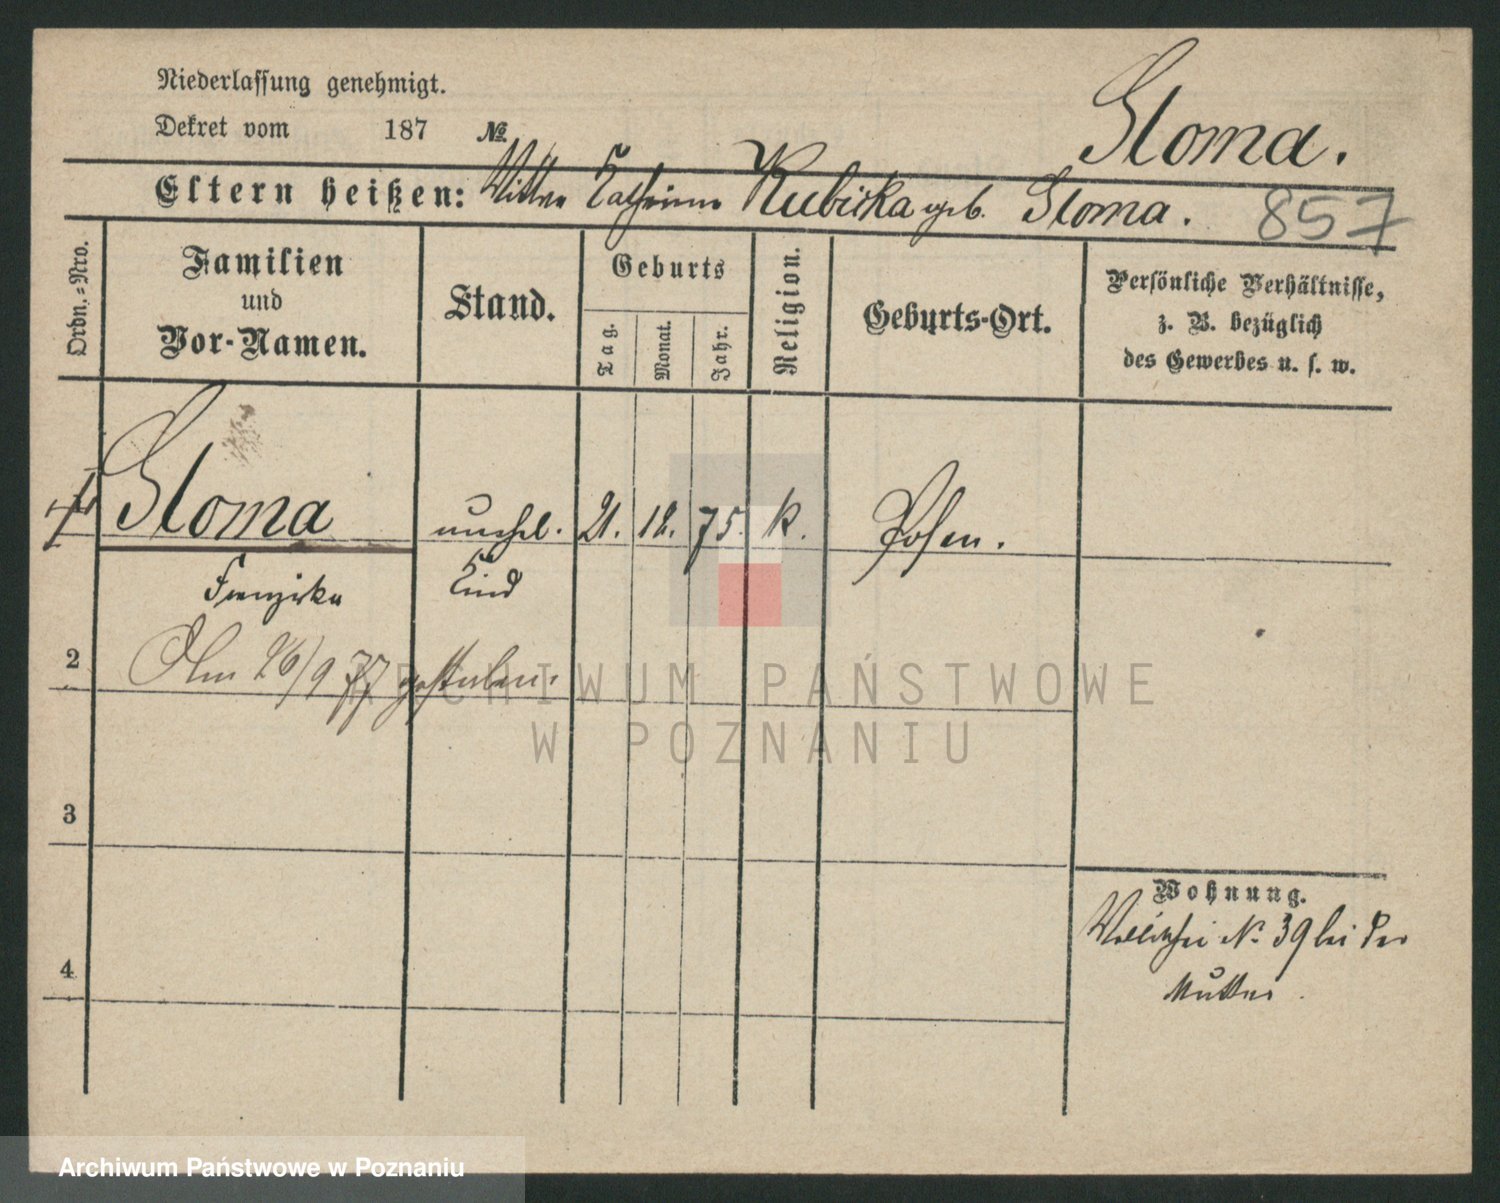 Niederlassung genehmigt.
Dekret vom 187 №
Sloma.
Eltern heißen: Wittwe Catharina Kubicka geb. Sloma.
857
Ordn.-Nro.
Familien
und
Vor-Namen.
Stand.
Geburts
Tag.
Monat.
Jahr.
Religion.
Geburts-Ort.
Persönliche Verhältnisse,
z. B. bezüglich
des Gewerbes u. s. w.
1 Sloma unehel. 21. 12. 75. k. Posen.
Franziska Kind
2 Am 26/9 77 gestorben.
3
4
Wohnung.
Wallischei № 39 bei der
Mutter.
ARCHIWUM PAŃSTWOWE
W POZNANIU
Archiwum Państwowe w Poznaniu